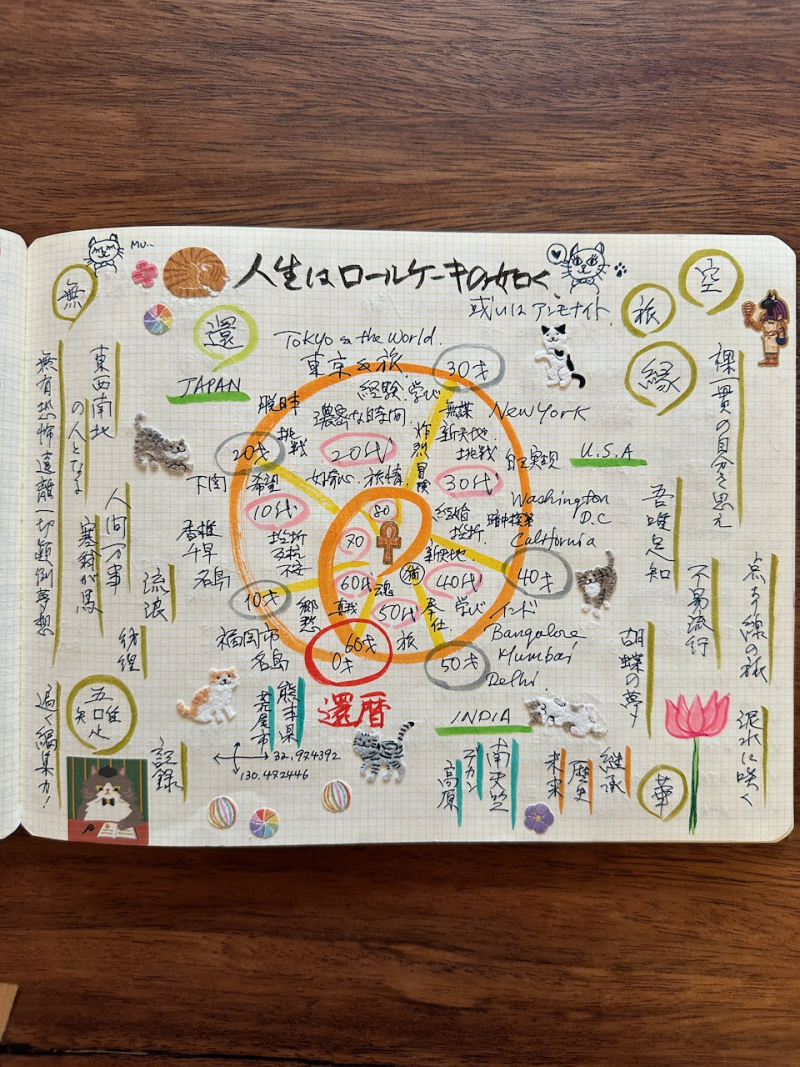 MU..
人生はロールケーキの如く、
或いはアンモナイト
無
還
旅
空
縁
Tokyo & the World.
東京&旅.
30才
JAPAN
経験.学び
脱日本
濃密な時間
無謀
New York
新天地.
挑戦
炸烈
冒険
20才
挑戦
20代
自己実現
U.S.A
下関
希望
好奇心.
旅情.
30代
10代
80
結婚
挫折.
Washington
D.C
暗中模索
California
香椎
千早
名島
挫折
反抗
不安
70
新天地.
60代
魂
猫
40代
40才
10才
郷愁
真我
50代
奉仕.
学び
インド
福岡市
名島
60才
0才
旅
Bangalore
Mumbai
Delhi
50才
還暦
熊本県
荒尾市
32.974392
130.472446
INDIA
デカン
高原
南天竺
未来
歴史
継承
華
裸一貫の自分を思え
吾唯足知
不易流行
点す線の祇
胡蝶の夢
泥水に咲く
東西南北
の人となる
人間万事
塞翁が馬
無有恐怖遠離一切顛倒夢想
流浪
彷徨
五
隹
止
矢
記録
遍く編集力!